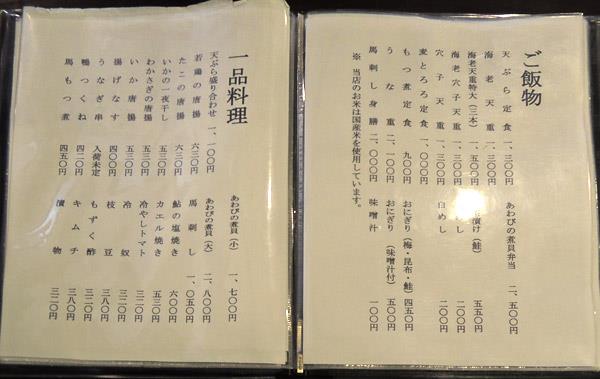 ご飯物
天ぷら定食 一、三〇〇円
海老天重 一、三〇〇円
海老天重特大(三本) 一、五〇〇円
海老穴子天重
穴子天重 一、三〇〇円
麦とろろ定食 一、〇〇〇円
もつ煮定食 九〇〇円
うな重 二、一〇〇円
馬刺し身膳 二、〇〇〇円
※ 当店のお米は国産米を使用しています。
あわびの煮貝弁当 二、五〇〇円
漬け(鮭) 五五〇円
めし 二〇〇円
白めし 二〇〇円
おにぎり(梅・昆布・鮭) 四五〇円
おにぎり(味噌汁付) 五〇〇円
味噌汁 一〇〇円
一品料理
天ぷら盛り合わせ 一、一〇〇円
若鶏の唐揚 六三〇円
たこの唐揚 六三〇円
いかの一夜干し
わかさぎの唐揚 五三〇円
いか唐揚 五三〇円
揚げなす 四〇〇円
うなぎ串 入荷未定
鴨つくね 四二〇円
馬もつ煮 四五〇円
あわびの煮貝(小) 一、七〇〇円
あわびの煮貝(大) 二、八〇〇円
馬刺し 一、〇五〇円
鮎の塩焼き 六〇〇円
カエル焼き 五三〇円
冷やしトマト 三二〇円
冷奴 三二〇円
枝豆 三八〇円
もずく酢 三二〇円
キムチ 三八〇円
漬物 三二〇円